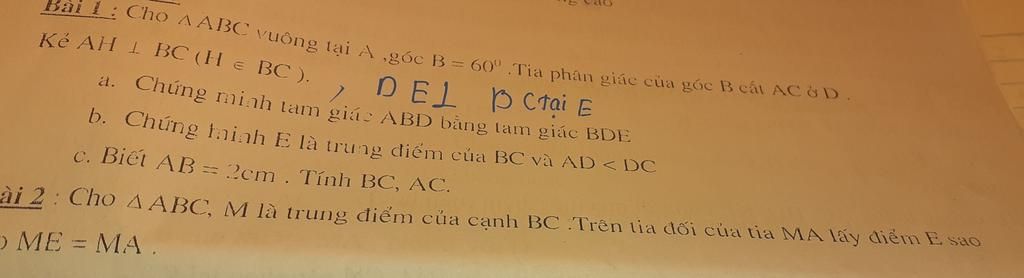 cao
Bài 1 : Cho △ABC vuông tại A ,góc B = 60⁰ .Tia phân giác của góc B cắt AC ở D .
Kẻ AH ⊥ BC ( H ∈ BC ). , DE⊥ BC tại E
a. Chứng minh tam giác ABD bằng tam giác BDE
b. Chứng minh E là trung điểm của BC và AD < DC
c. Biết AB = 2cm . Tính BC, AC.
ài 2 : Cho △ABC, M là trung điểm của cạnh BC .Trên tia đối của tia MA lấy điểm E sao
ME = MA .